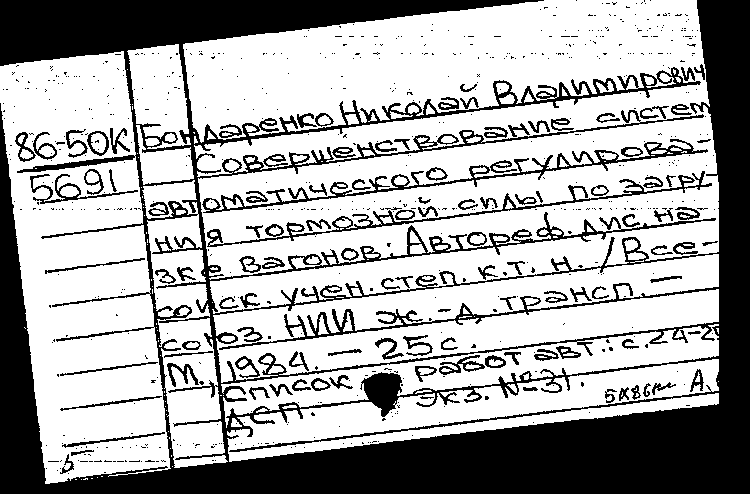 86-50К
5691
Бондаренко Николай Владимирович
Совершенствование систем
автоматического регулирова-
ния тормозной силы по загру-
зке вагонов: Автореф. дис. на
соиск. учен. степ. к.т.н. / Все-
союз. НИИ ж.-д. трансп. —
М., 1984. — 25 с.
Список работ авт.: с. 24-25
ДСП. Экз. № 31.
Б